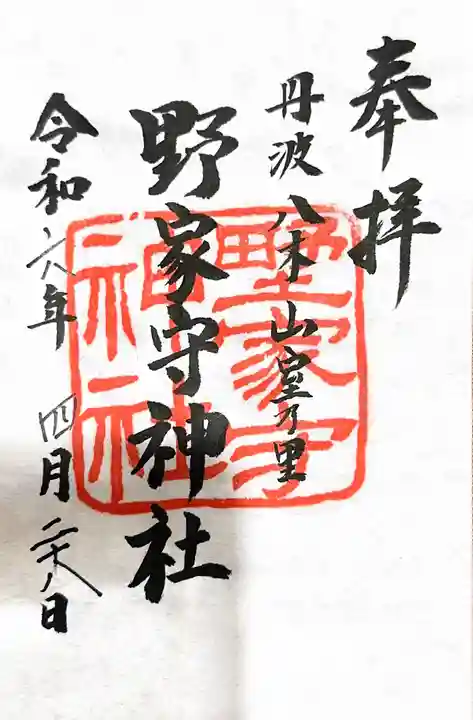 奉拝
丹波 八木 山皇乃里
野家守神社
令和六年 四月二十八日
野家守
神社